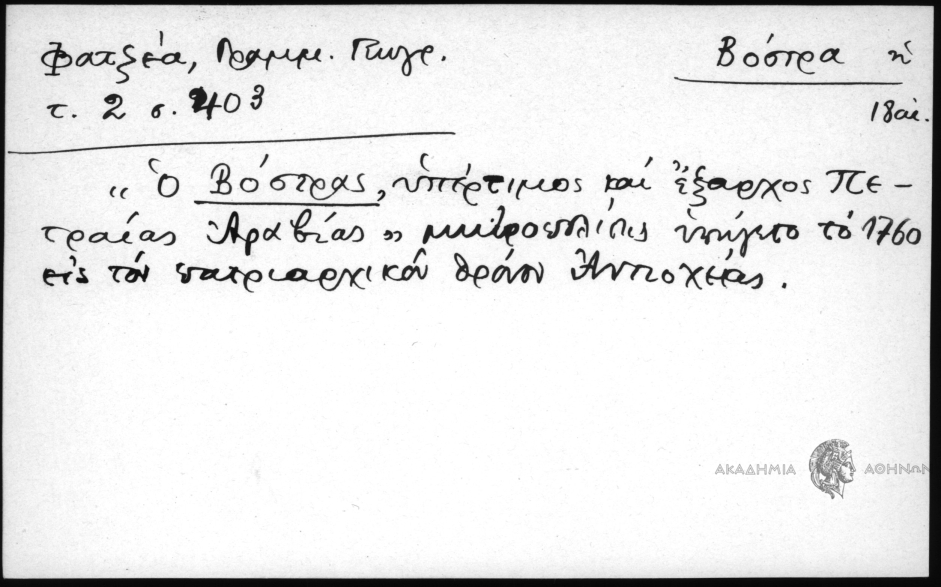 Φατζέα, Γραμμ. Γεωγρ.
τ. 2 σ. 403
Βόστρα ἡ
18 αἰ.
„ Ὁ Βόστρας, ὑπέρτιμος καί ἔξαρχος Πε-
τραίας Ἀραβίας „ μητροπολίτης ὑπήγετο τό 1760
εἰς τόν πατριαρχικόν θρόνον Ἀντιοχείας.
ΑΚΑΔΗΜΙΑ ΑΘΗΝΩΝ